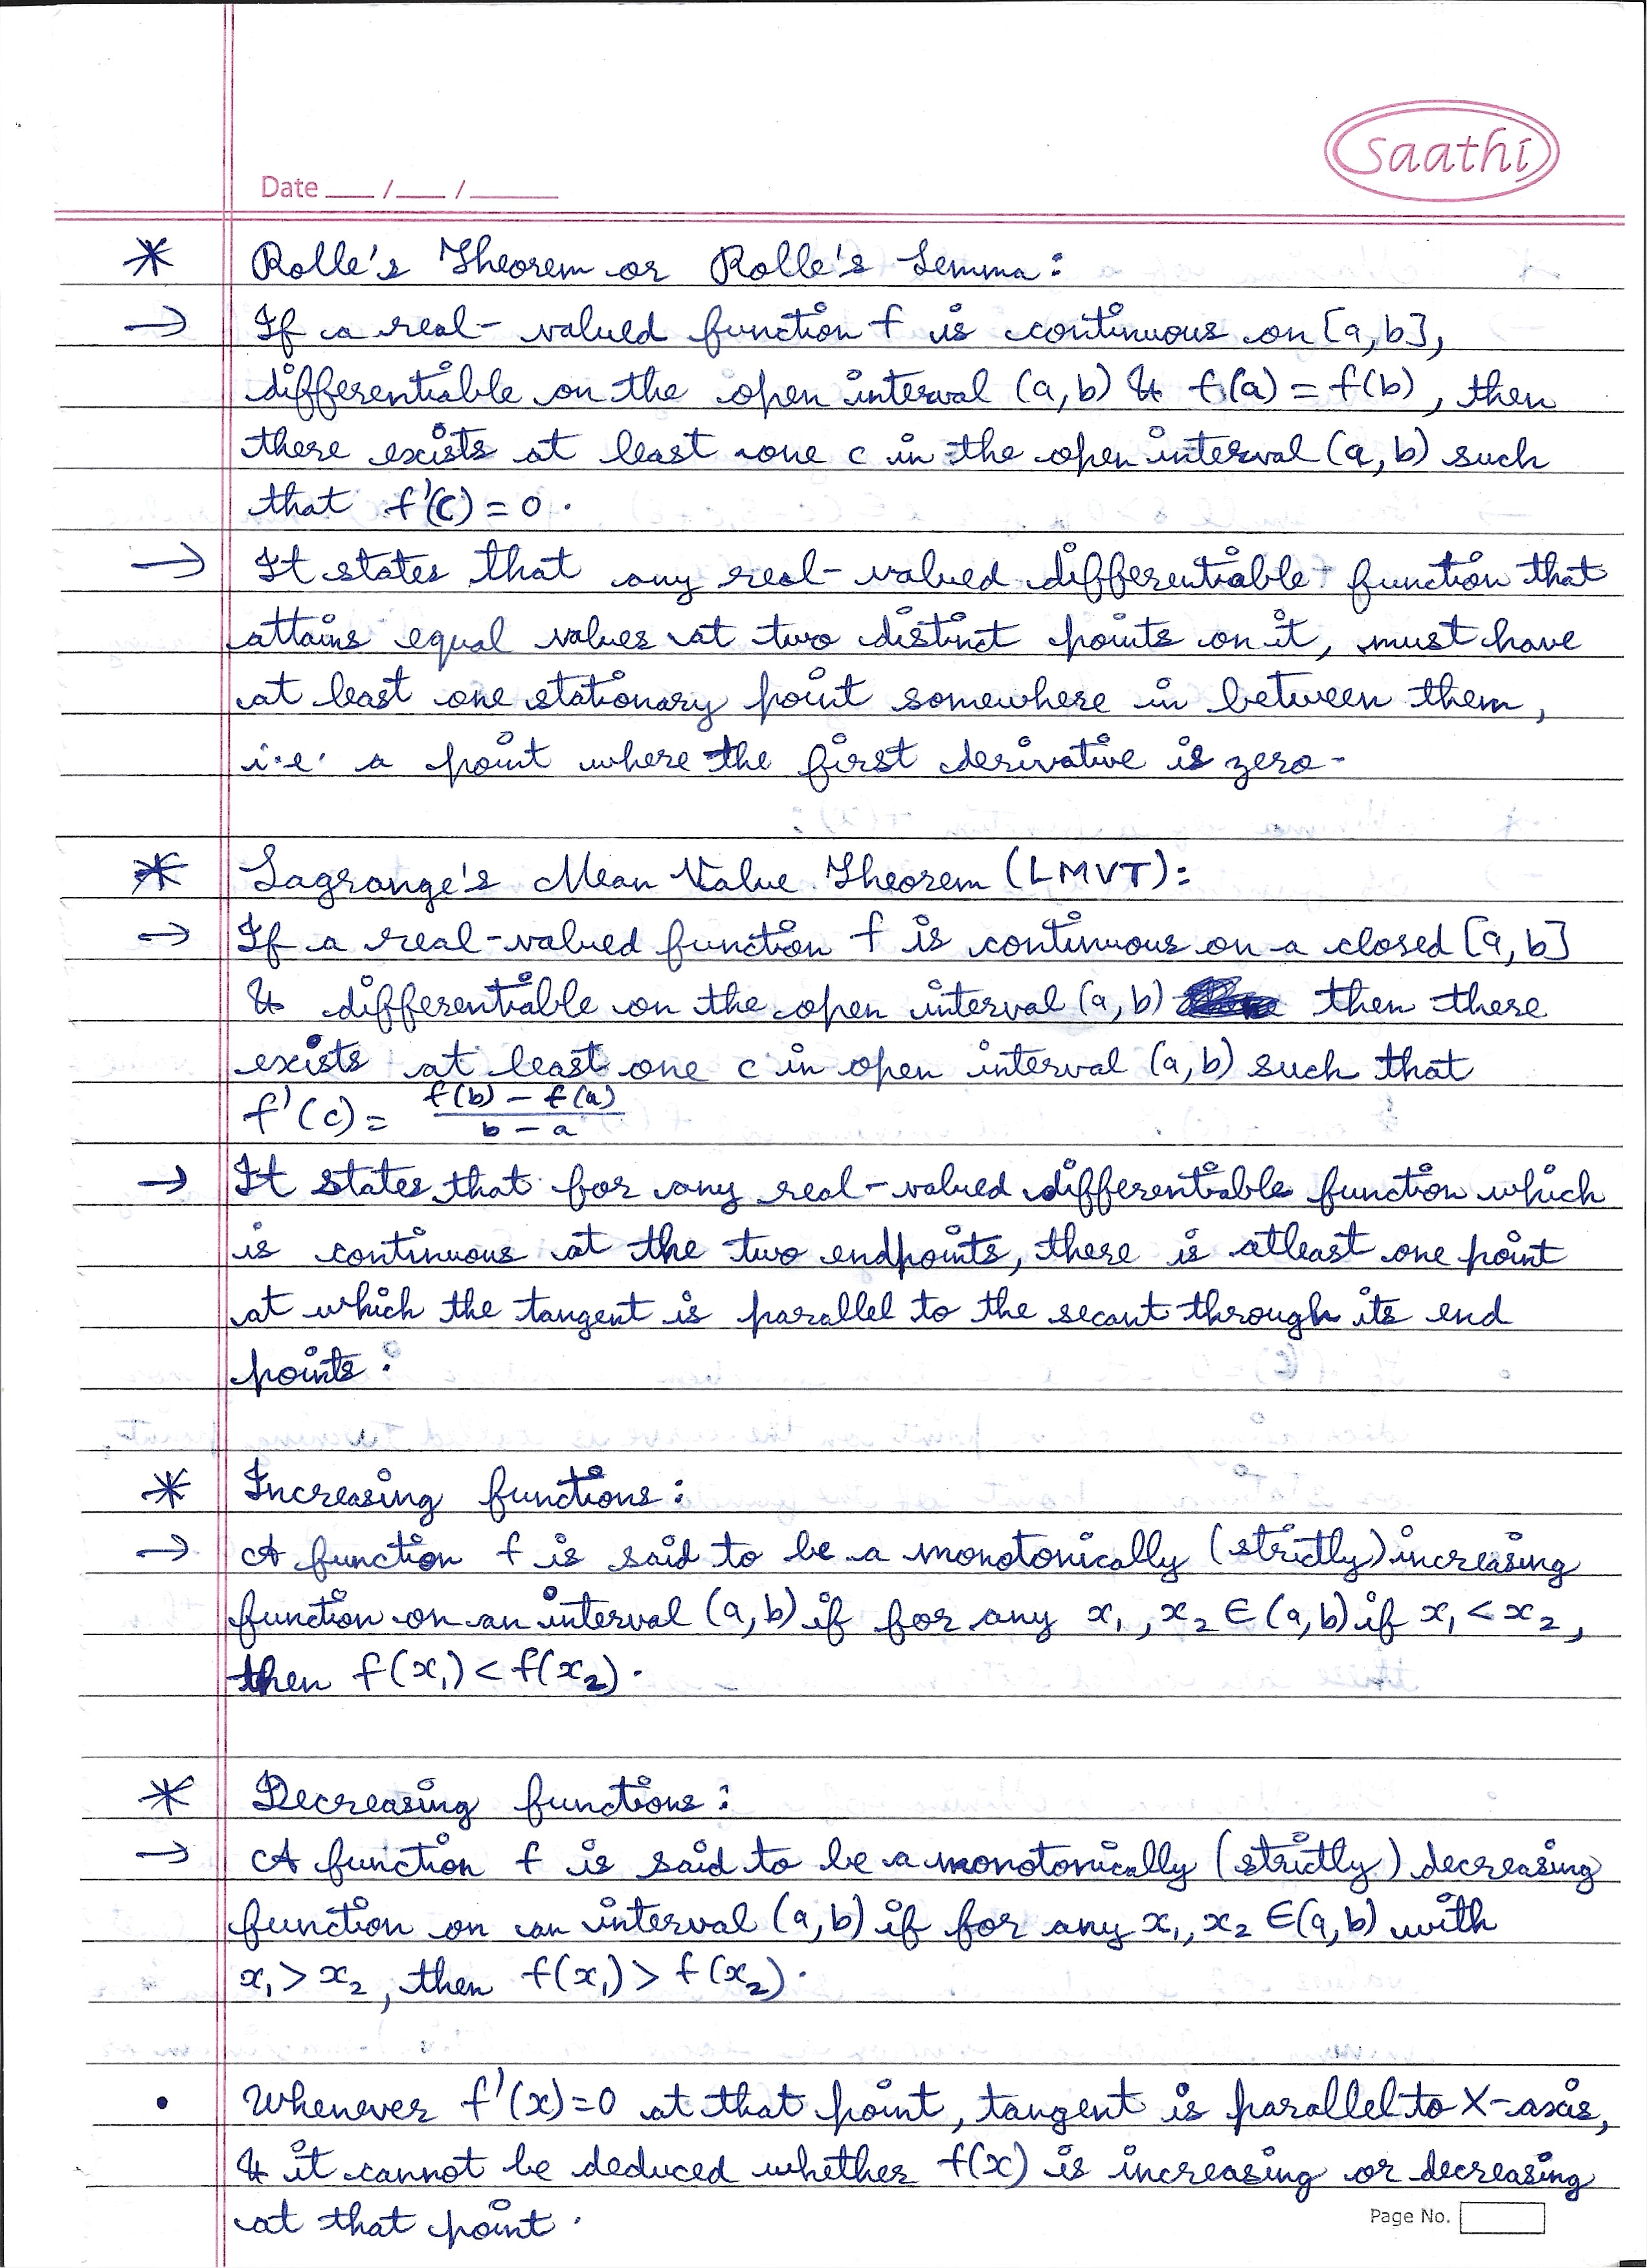 saathi
Date ___ / ___ / ______
* Rolle's Theorem or Rolle's Lemma:
→ If a real-valued function f is continuous on [a,b],
differentiable on the open interval (a,b) & f(a) = f(b), then
there exists at least one c in the open interval (a,b) such
that f'(c) = 0.
→ It states that any real-valued differentiable function that
attains equal values at two distinct points on it, must have
at least one stationary point somewhere in between them,
i.e. a point where the first derivative is zero.
* Lagrange's Mean Value Theorem (LMVT):
→ If a real-valued function f is continuous on a closed [a,b]
& differentiable on the open interval (a,b) then there
exists at least one c in open interval (a,b) such that
f'(c) = f(b) - f(a) / b - a
→ It states that for any real-valued differentiable function which
is continuous at the two endpoints, there is atleast one point
at which the tangent is parallel to the secant through its end
points.
* Increasing functions:
→ A function f is said to be a monotonically (strictly) increasing
function on an interval (a,b) if for any x₁, x₂ ∈ (a,b) if x₁ < x₂,
then f(x₁) < f(x₂).
* Decreasing functions:
→ A function f is said to be a monotonically (strictly) decreasing
function on an interval (a,b) if for any x₁, x₂ ∈ (a,b) with
x₁ > x₂, then f(x₁) > f(x₂).
• Whenever f'(x)=0 at that point, tangent is parallel to X-axis,
& it cannot be deduced whether f(x) is increasing or decreasing
at that point.
Page No.